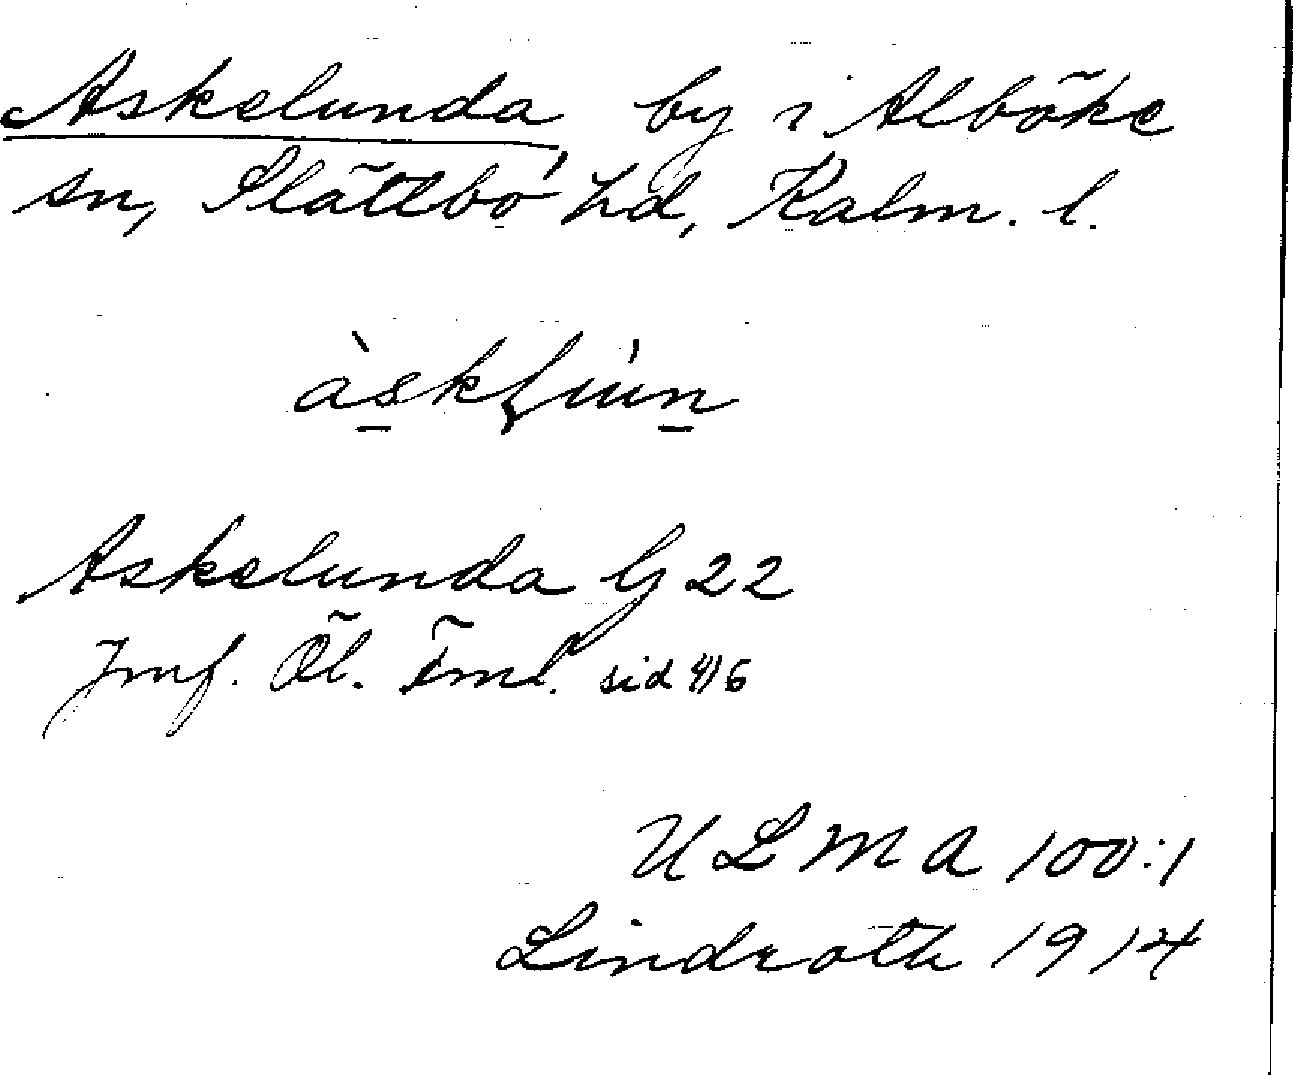 Askelunda by i Alböke
sn, Slättbo hd, Kalm. l.
Askelunda G 22
Jmf. Öl. Fml. sid 416
ULMA 100:1
Lindroth 1914